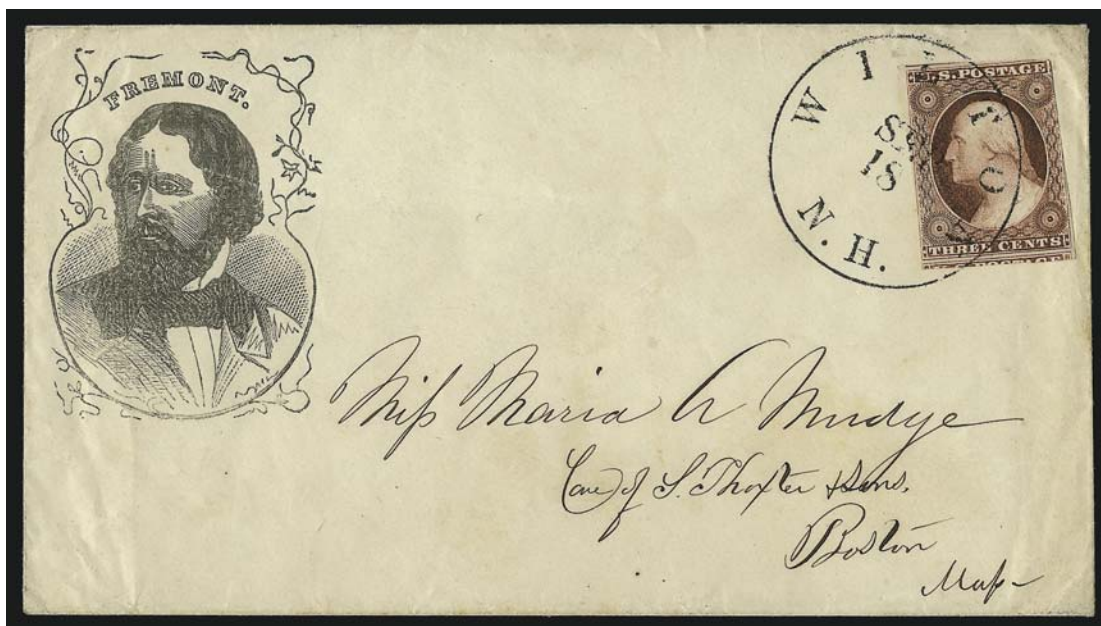 FREMONT.
WILTON
N.H.
SEP
18
U.S. POSTAGE
THREE CENTS
U.S. POSTAGE
Miss Maria A Mudge
Care of S. Thaxter & Sons.
Boston
Mass